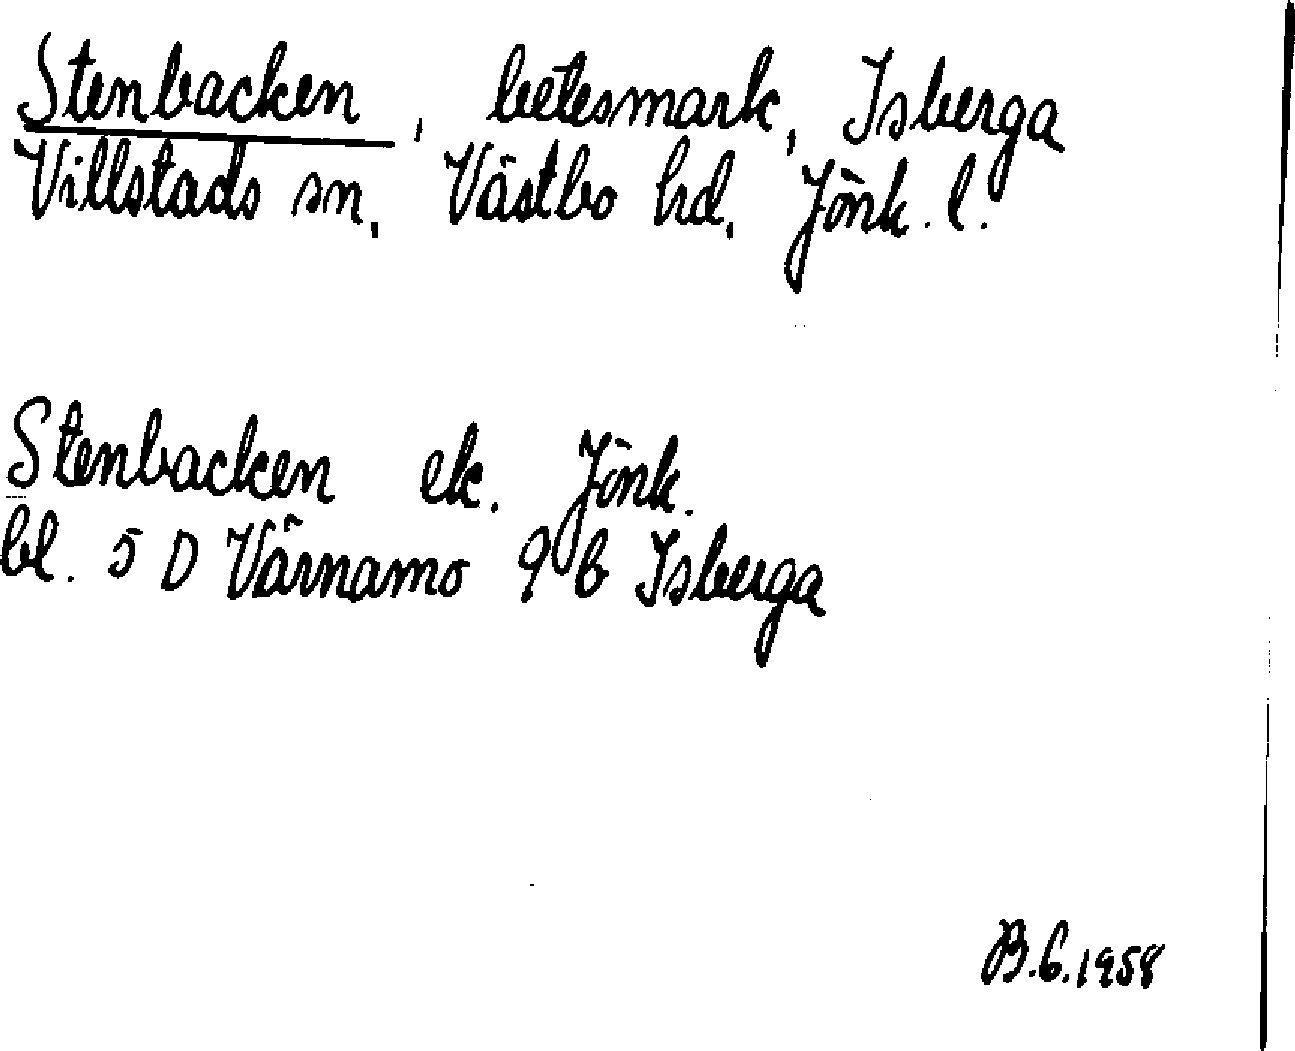 Stenbacken, betesmark, Isberga
Villstads sn, Västbo hd, Jönk. l.
Stenbacken ek. Jönk.
bl. 5 D Värnamo 9 b Isberga
B.G.1958